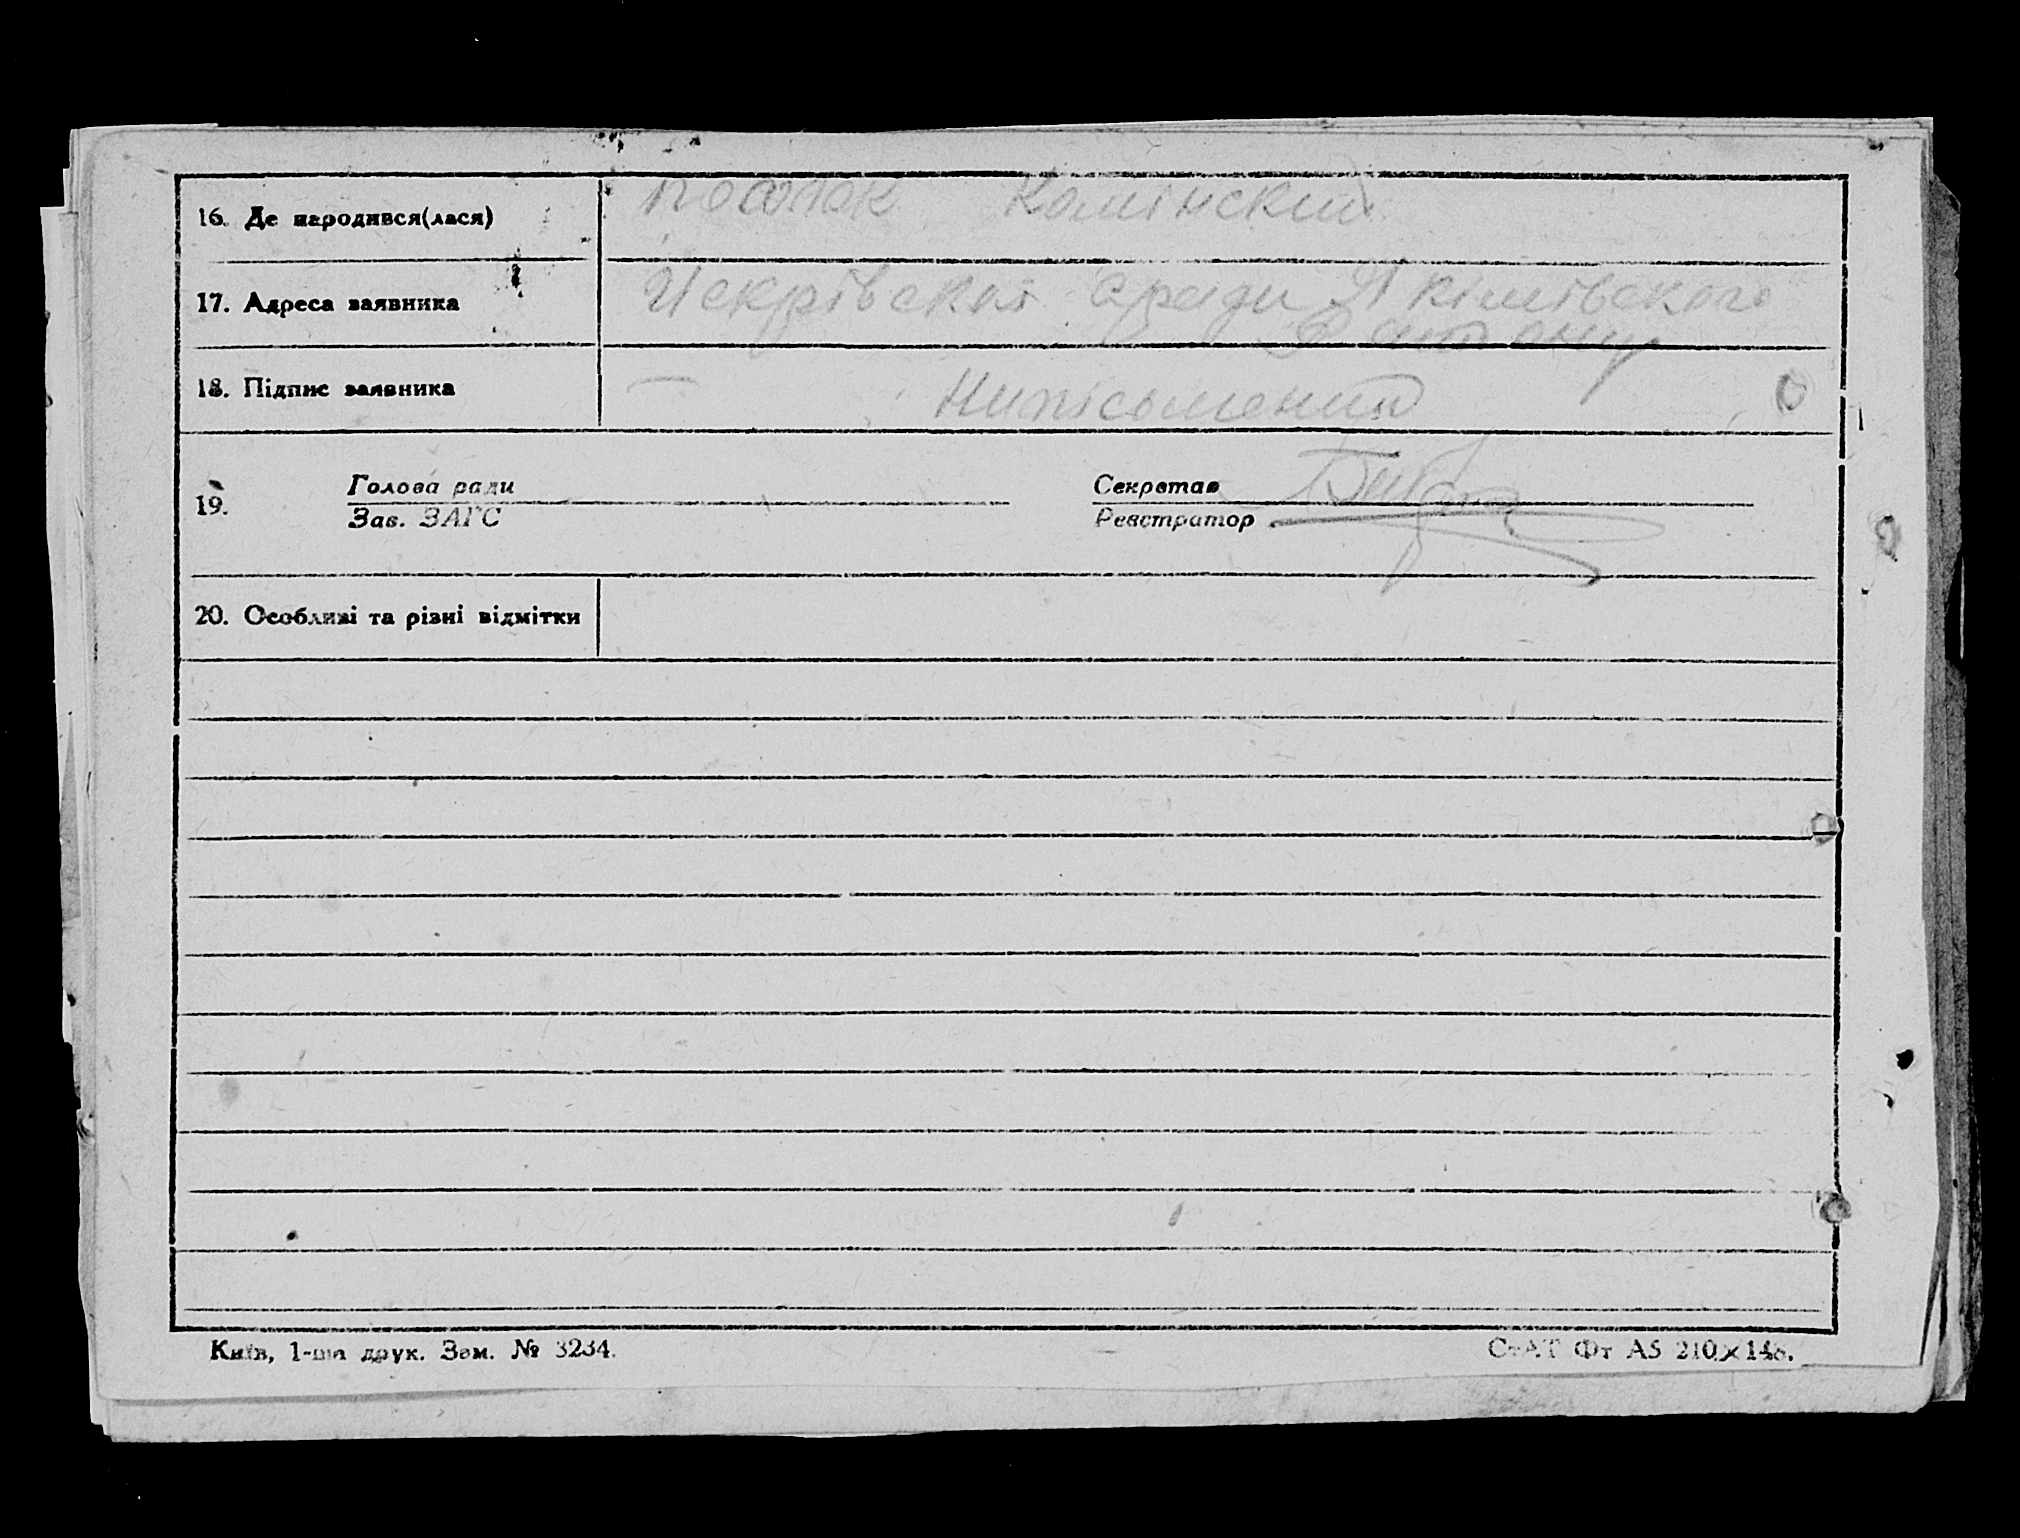 16. Де народився(лася) посолок Камінский
17. Адреса заявника Искрівская с/ради Якімівского
району
18. Підпис заявника Нипісьмений
19. Голова ради Секретар
Зав. ЗАГС Реєстратор
20. Особливі та різні відмітки
Київ, 1-ша друк. Зам. № 3234. СтАТ Фт А5 210×148.